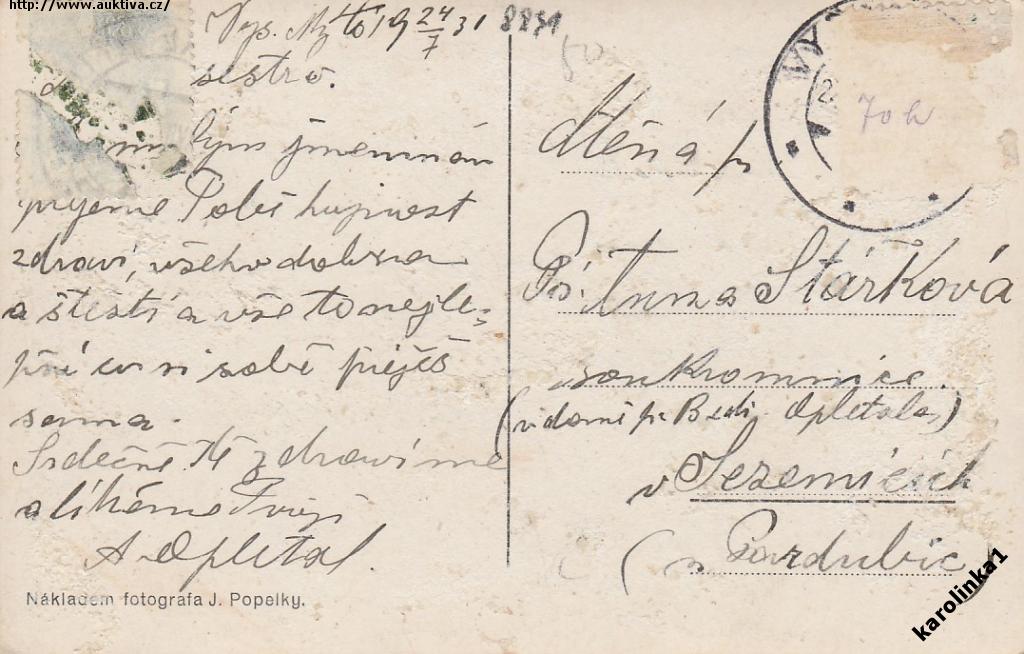 http://www.auktiva.cz/
Vys. Mýto 19 24/7 31
8831
sestro.
jmeninám
přejeme Tobě hojnost
zdraví, všeho dobra
a štěstí a vše to nejle-
pší co si sobě přeješ
sama.
Srdečně Tě zdravíme
a líbáme Tvoji
A Opletal.
Nákladem fotografa J. Popelky.
50
VY
70 h
Ctěná pí
Pí. Anna Stárková
soukromnice.
(v domě p. Opletala)
v Sezemicích
(u Pardubic
karolinka1